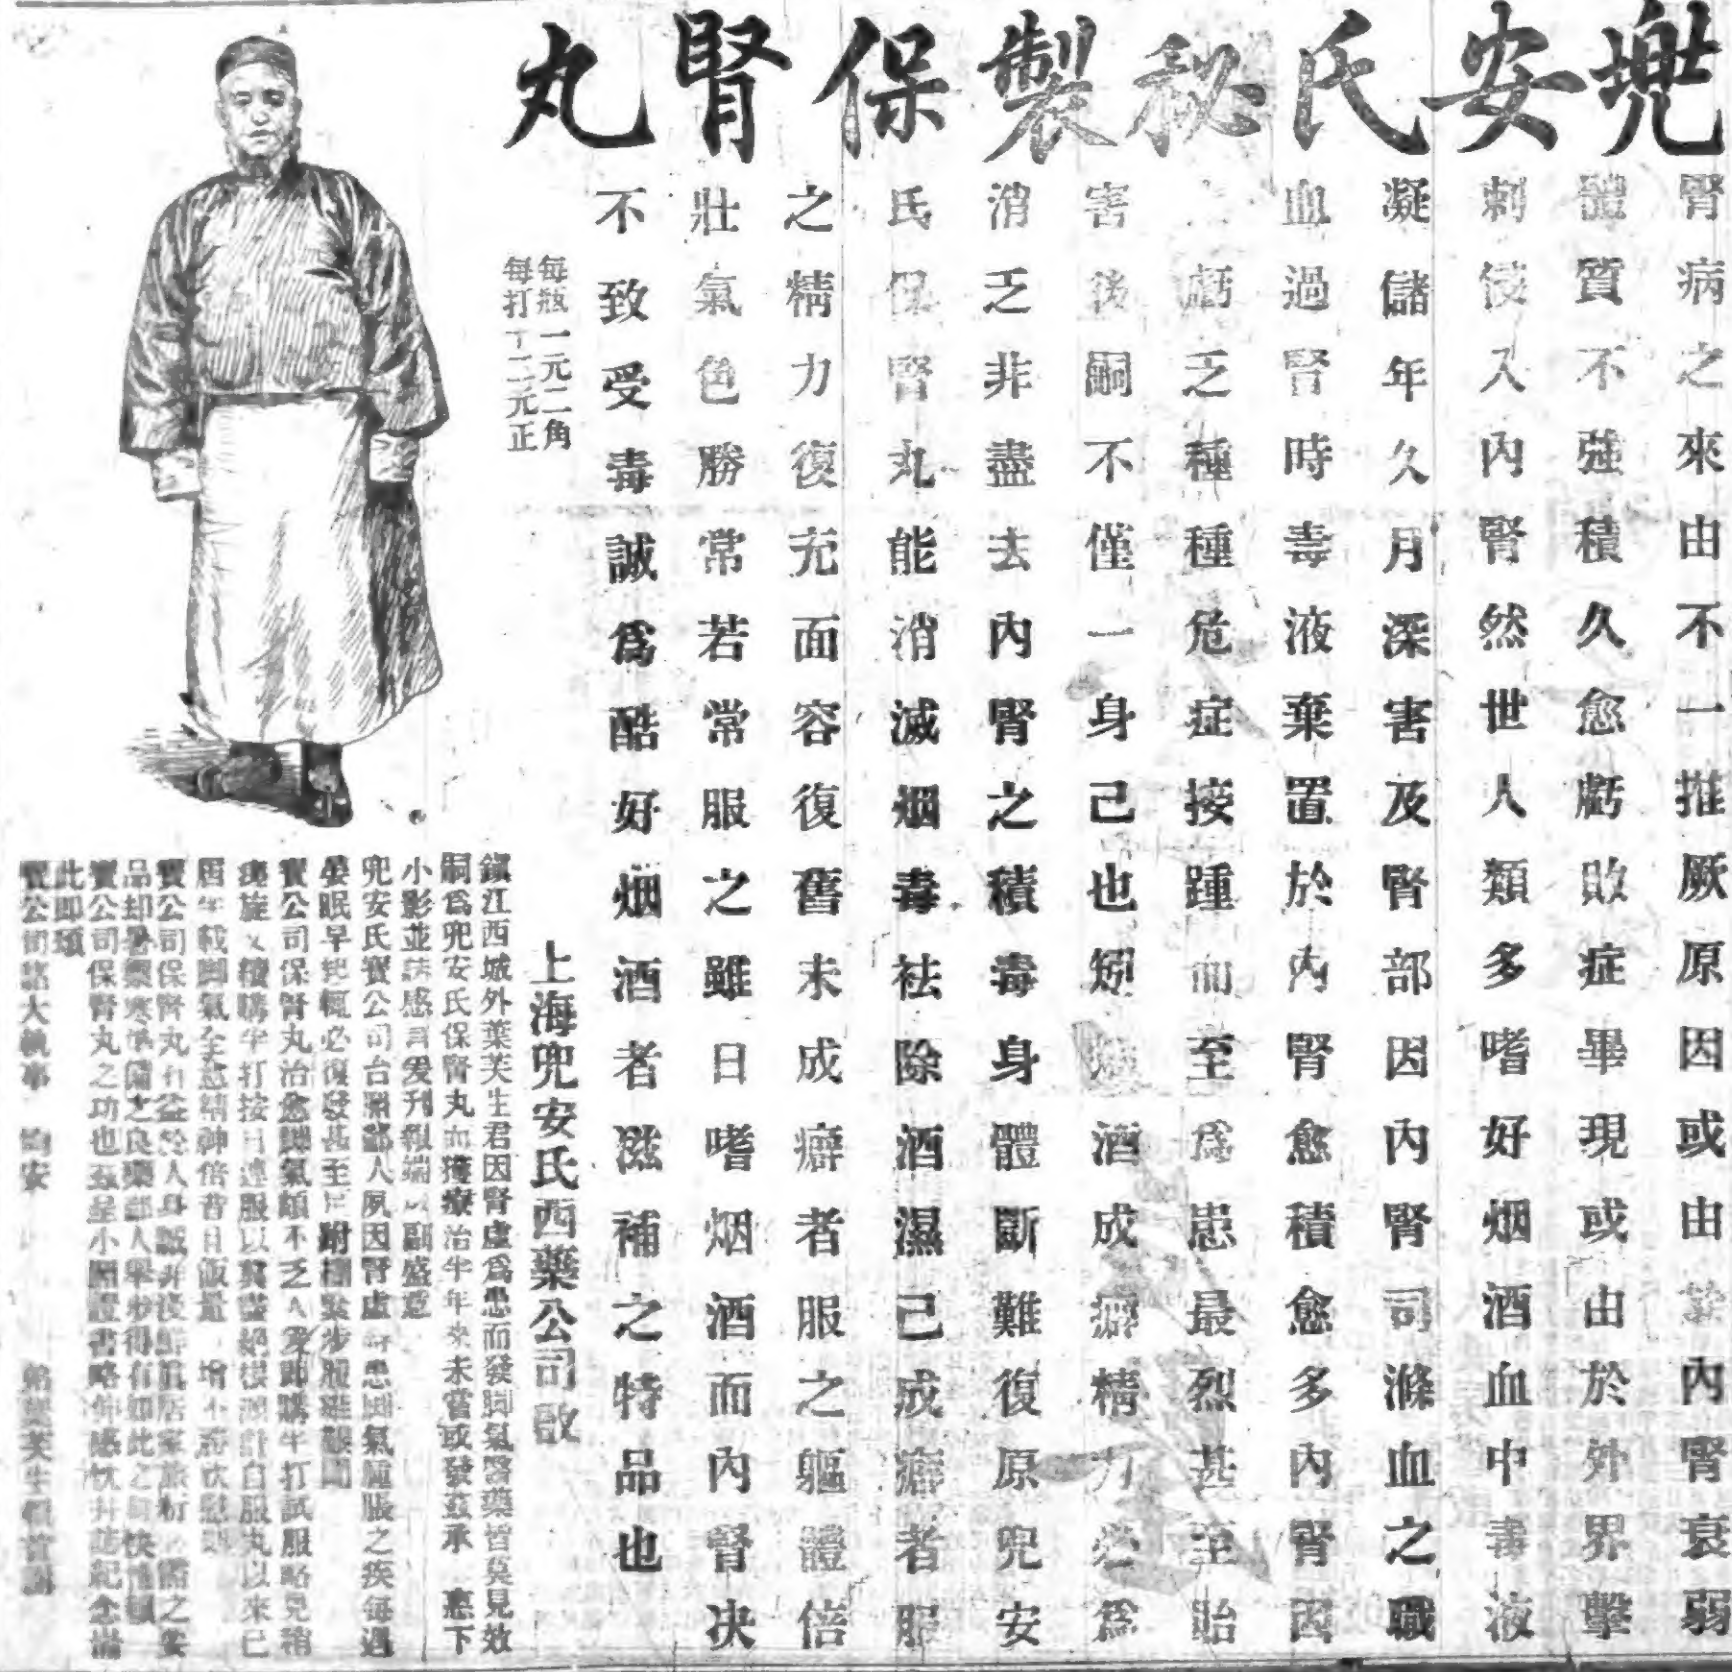 兜安氏秘製保腎丸
腎病之來由不一推厥原因或由內腎衰弱
體質不強積久愈虧敗症畢現或由於外界擊
刺侵入內腎然世人類多嗜好烟酒血中毒液
凝儲年久月深害及腎部因內腎司滌血之職
血過腎時毒液棄置於內腎愈積愈多內腎因
之虧乏種種危症接踵而至為患最烈甚至貽
害後嗣不僅一身己也烟酒成癖精力必為
消乏非盡去內腎之積毒身體斷難復原兜安
氏保腎丸能消滅烟毒祛除酒濕己成癖者服
之精力復充面容復舊未成癖者服之軀體倍
壯氣色勝常若常服之雖日嗜烟酒而內腎决
不致受毒誠為酷好烟酒者滋補之特品也
每瓶一元二角
每打十二元正
上海兜安氏西藥公司啟
鎮江西城外葉芙生君因腎虛為患而發脚氣醫藥皆莫見效
嗣為兜安氏保腎丸而獲療治半年來未嘗或發茲承 惠下
小影並誌感言爰刊報端以副盛意
兜安氏寶公司台照鄙人夙因腎虛患脚氣腫脹之疾每遇
晏眠早起輒必復發甚至足跗緊步履
寶公司保腎丸治愈脚氣頗不乏人爰即購半打試服略見稍
痊旋又續購半打按日連服以自服丸以來已
屆年載脚氣全愈精神倍昔日飯量增
寶公司保腎丸有益於人身誠非淺鮮居家旅行必備之妥
品却暑禦寒之良藥鄙人舉步得有如此之快
寶公司保腎丸之功也茲呈小照證書略伸感忱并誌紀念耑
此即頌
寶公司諸大執事 均安
弟葉芙生頓首謝